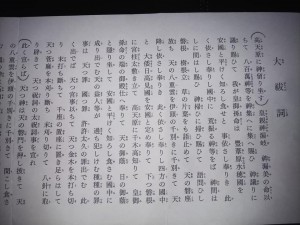 大祓詞
高天原に神留り坐す 皇親神漏岐 神漏美の命以ち
て 八百萬神等を神集へに集へ賜ひ 神議りに
議り賜ひて 我が皇御孫命は 豊葦原水穂國を
安國と平けく知ろし食せと 事依さし奉りき 此
く依さし奉りし國中に 荒振る神等をば 神問は
しに問はし賜ひ 神掃ひに掃ひ賜ひて 語問ひし
磐根 樹根立 草の片葉をも語止めて 天の磐座
放ち 天の八重雲を 伊頭の千別きに千別きて 天
降し依さし奉りき 此く依さし奉りし四方の國中
と 大倭日高見國を安國と定め奉りて 下つ磐根
に宮柱太敷き立て 高天原に千木高知りて 皇御
孫命の瑞の御殿仕へ奉りて 天の御蔭 日の御蔭
と隠り坐して 安國と平けく知ろし食さむ國中に
成り出でむ天の益人等が 過ち犯しけむ種種の罪
事は 天つ罪 國つ罪 許許太久の罪出でむ 此く
出でば 天つ宮事以ちて 天つ金木を本打ち切
り 末打ち斷ちて 千座の置座に置き足らはして
天つ菅麻を本刈り斷ち 末刈り切りて 八針に取
り辟きて 天つ祝詞の太祝詞事を宣れ
此く宣らば 天つ神は天の磐門を押し披きて 天
の八重雲を伊頭の千別きに千別きて 聞こし食さ